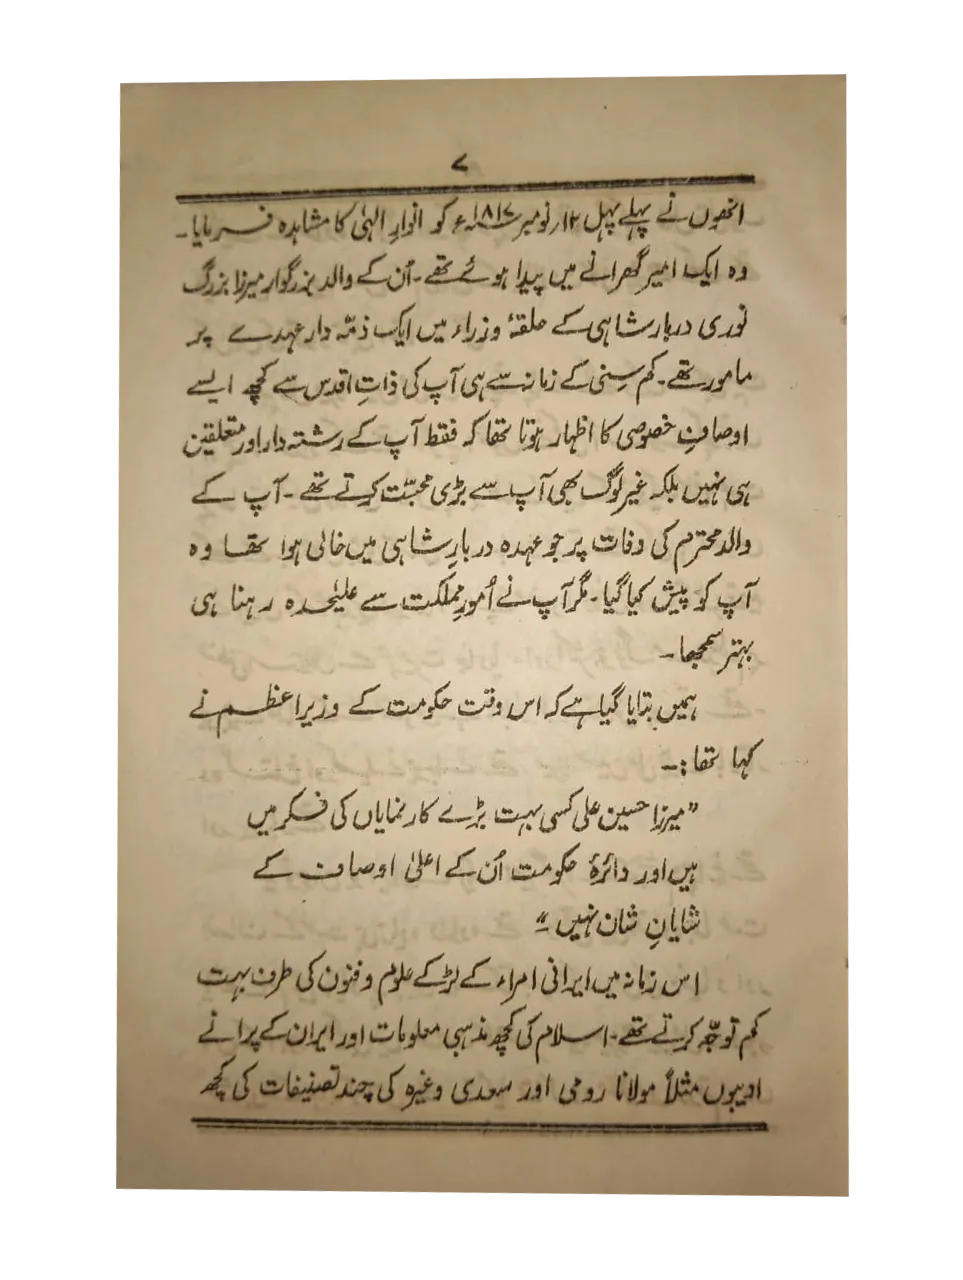 ۷
انھوں نے پہلے پہل ۱۲ر نومبر ۱۸۱۷ء کو انوارِ الہٰی کا مشاہدہ فرمایا۔
وہ ایک امیر گھرانے میں پیدا ہوئے تھے۔ اُن کے والد بزرگوار میرزا بزرگ
نوری دربار شاہی کے حلقۂ وزراء میں ایک ذمّہ دار عہدے پر
مامور تھے۔ کم سِنی کے زمانہ سے ہی آپ کی ذاتِ اقدس سے کچھ ایسے
اوصافِ خصوصی کا اظہار ہوتا تھا کہ فقط آپ کے رشتہ دار اور متعلقین
ہی نہیں بلکہ غیر لوگ بھی آپ سے بڑی محبّت کرتے تھے۔ آپ کے
والد محترم کی وفات پر جو عہدہ دربارِ شاہی میں خالی ہوا تھا وہ
آپ کو پیش کیا گیا۔ مگر آپ نے اُمورِ مملکت سے علیٰحدہ رہنا ہی
بہتر سمجھا۔
ہمیں بتایا گیا ہے کہ اس وقت حکومت کے وزیراعظم نے
کہا تھا:۔
”میرزا حسین علی کسی بہت بڑے کار نمایاں کی فکر میں
ہیں اور دائرۂ حکومت اُن کے اعلیٰ اوصاف کے
شایانِ شان نہیں“۔
اس زمانہ میں ایرانی امراء کے لڑکے علوم و فنون کی طرف بہت
کم توجّہ کرتے تھے۔ اسلام کی کچھ مذہبی معلومات اور ایران کے پرانے
ادیبوں مثلاً مولانا رومی اور سعدی وغیرہ کی چند تصنیفات کی کچھ